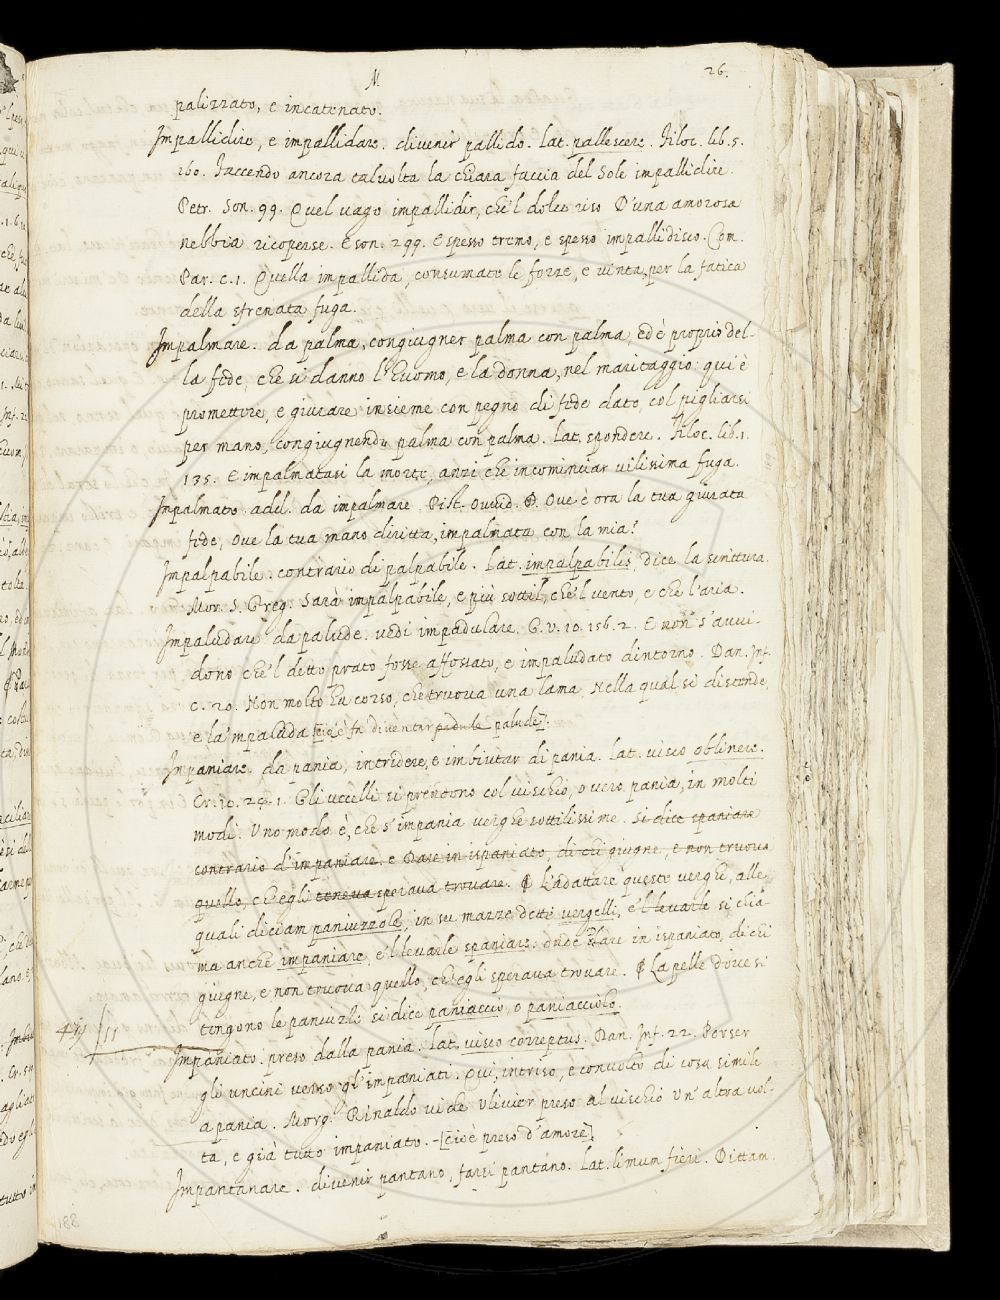 M
26.
palizzato, e incatenato.
Impallidire, e impallidare. divenir pallido. Lat. pallescere. Filoc. lib. 5.
160. Faccendo ancora talvolta la chiara faccia del Sole impallidire.
Petr. Son. 99. Quel vago impallidir, che'l dolce riso D'una amorosa
nebbia ricoperse. E son. 299. E spesso tremo, e spesso impallidisco. Com.
Par. c. 1. Quella impallida, consumate le forze, e vinta per la fatica
della sfrenata fuga.
Impalmare. da palma, congiugner palma con palma, ed è proprio del-
la fede, che si danno l'huomo, e la donna, nel maritaggio: qui è
promettere, e giurare insieme con pegno di fede dato, col pigliarsi
per mano, congiugnendo palma con palma. Lat. spondere. Filoc. lib. 1.
135. E impalmatasi la morte, anzi che incominciar vilissima fuga.
Impalmato. add. da impalmare. Pist. Ovvid. Ove è ora la tua giurata
fede, ove la tua mano diritta, impalmata con la mia?
Impalpabile. contrario di palpabile. Lat. impalpabilis, dice la scrittura.
Mor. S. Greg. Sarà impalpabile, e più sottil, che'l vento, e che l'aria.
Impaludare da palude. vedi impadulare. G. V. 10. 156. 2. E non s'avvi-
dono che'l detto prato fosse affossato, e impaludato dintorno. Dan. Inf.
c. 20. Non molto ha corso, che truova una lama, Nella qual si distende,
e la 'mpaluda [cioè fa diventar padule palude].
Impaniare. da pania, intridere, e imbiutar di pania. Lat. visco oblinere.
Cr. 10. 28. 1. Gli uccelli si prendono col vischio, o vero pania, in molti
modi. Uno modo è, che s'impania verghe sottilissime. Si dice spaniare
contrario d'impaniare. e Dare in ispaniato, di chi giugne, e non truova
quello, ch'egli teneva sperava trovare. L'adattare queste verghe, alle
quali diciam paniuzzole, in su mazze dette vergelli, e'l levarle si chia-
ma anche impaniare, e'l levarle spaniare. onde Dare in ispaniato, di chi
giugne, e non truova quello, ch'egli sperava trovare. La pelle dove si
tengono le paniuzze si dice paniaccio, o paniacciolo.
Impaniato. preso dalla pania. Lat. visco correptus. Dan. Inf. 22. Porser
gli uncini verso gl'impaniati. Qui, intriso, e convolto di cosa simile
a pania. Morg. Rinaldo vide Ulivier preso al vischio Un'altra vol-
ta, e già tutto impaniato. [cioè preso d'amore]
Impantanare. divenir pantano, farsi pantano. Lat. limum fieri. Dittam.